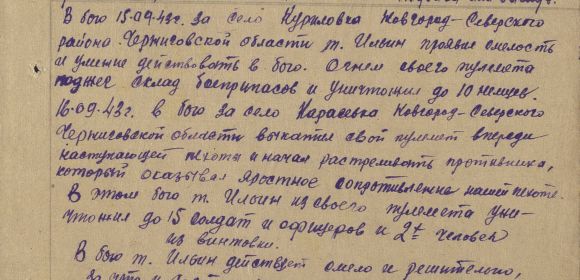 В бою 15.09.43г. за село Куриловка Новгород-Северского
района Черниговской области т. Ильин проявил смелость
и умение действовать в бою. Огнем своего пулемета
поджег склад боеприпасов и уничтожил до 10 немцев.
16.09.43г. в бою за село Карасевка Новгород-Северского
Черниговской области выкатил свой пулемет впереди
наступающей пехоты и начал расстреливать противника,
который оказывал яростное сопротивление нашей пехоте.
В этом бою т. Ильин из своего пулемета уни-
чтожил до 15 солдат и офицеров и 2х человек
из винтовки.
В бою т. Ильин действует смело и решительно,